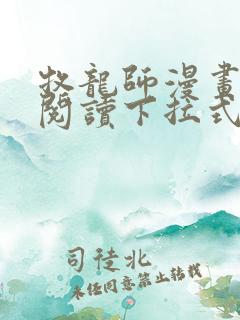 牧龍師漫畫
閱讀下拉式
司徒北
未經同意禁止轉載